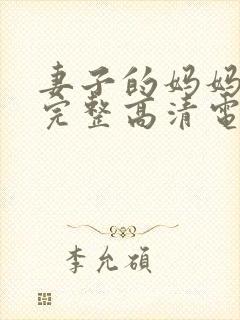 妻子的妈妈
完整高清電
李允碩